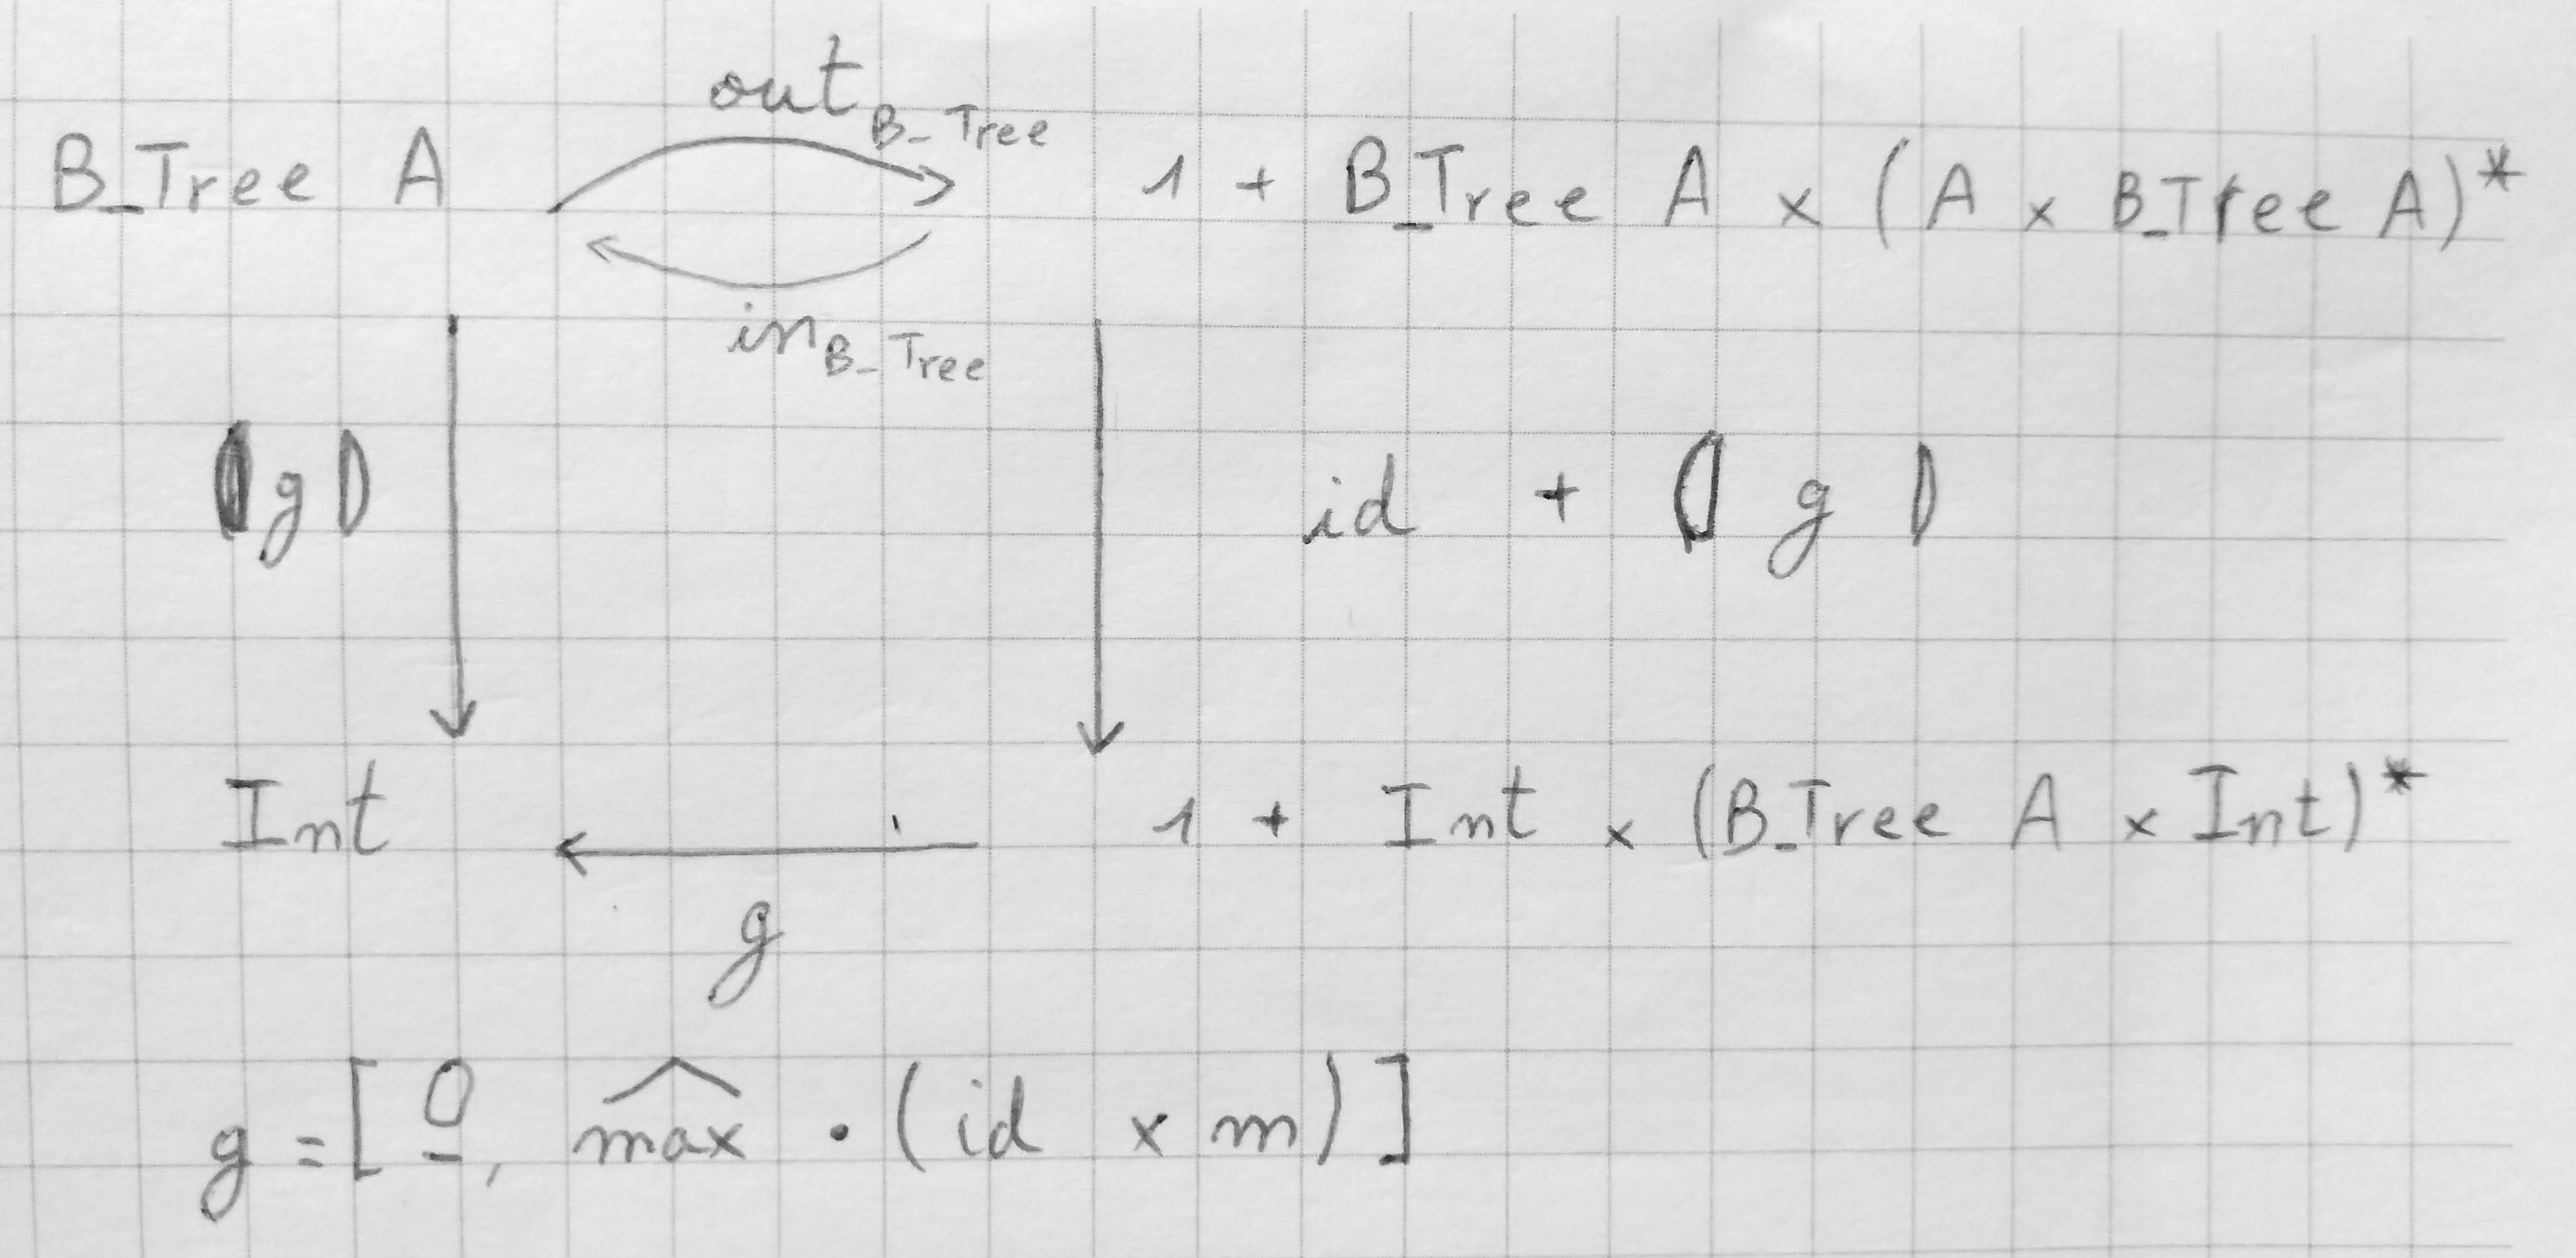 out B_Tree
B_Tree A 1 + B_Tree A × (A × B_Tree A)*
in B_Tree
⦇g⦈ id + ⦇ g ⦈
Int 1 + Int × (B_Tree A × Int)*
g
g = [0, max · (id × m)]